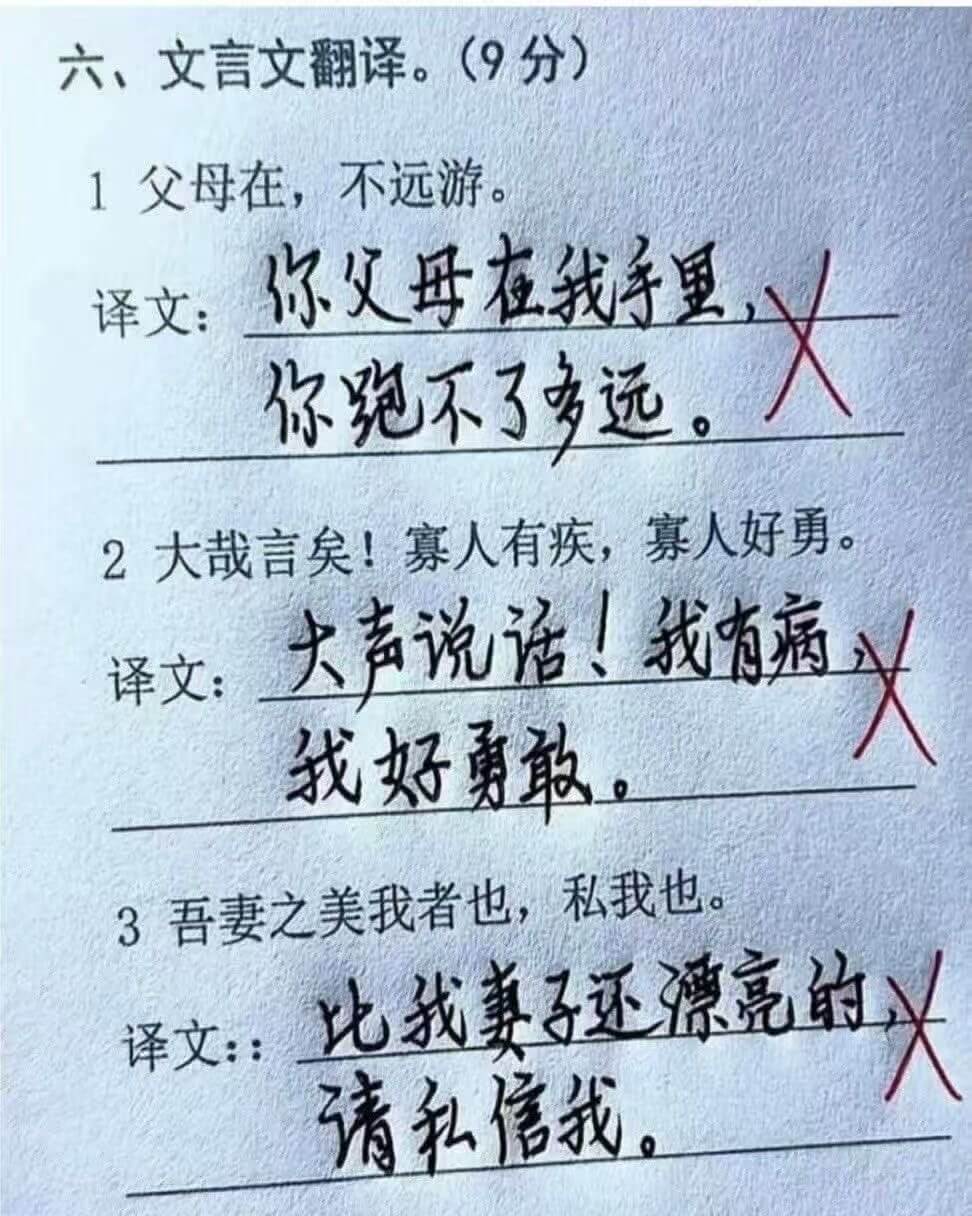 六、文言文翻译。（9分）
1 父母在，不远游。
译文：你父母在我手里，
你跑不了多远。
2 大哉言矣！寡人有疾，寡人好勇。
译文：大声说话！我有病，
我好勇敢。
3 吾妻之美我者也，私我也。
译文：：比我妻子还漂亮的，
请私信我。